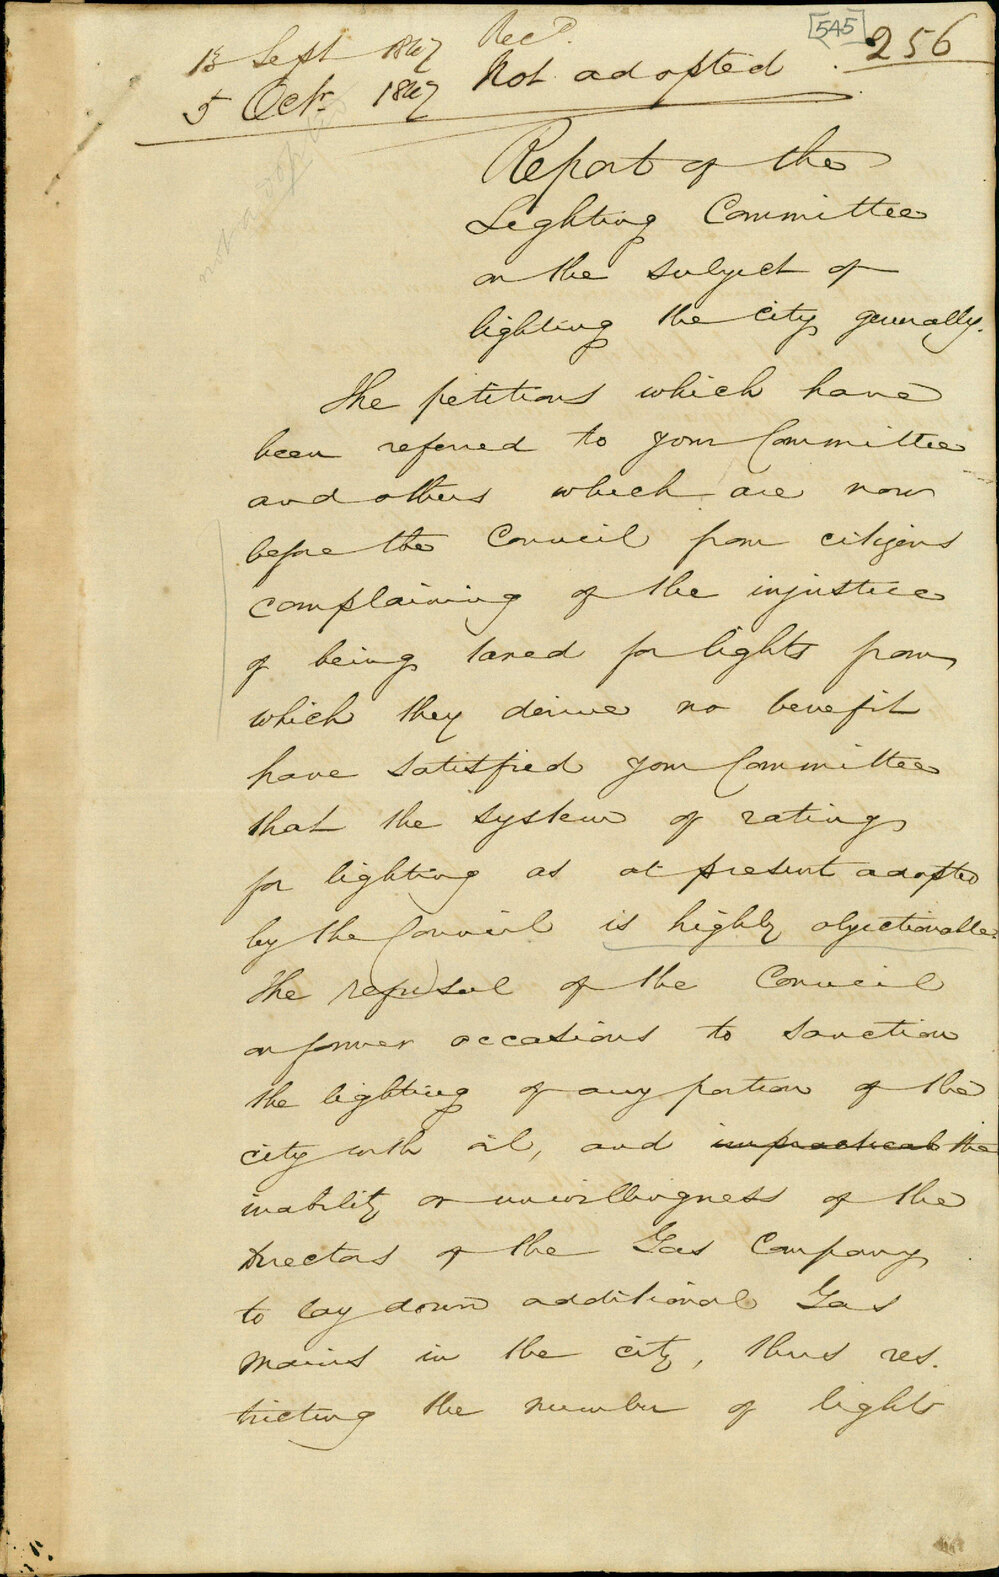 [545] 256
13 Sept 1847 Recd.
5 Octr 1847 Not adopted
not adopted
Report of the
Lighting Committee
on the subject of
lighting the city generally.
The petitions which have
been referred to your Committee
and others which are now
before the Council from citizens
complaining of the injustice
of being taxed for lights from
which they derive no benefit
have satisfied your Committee
that the system of rating
for lighting as at present adopted
by the Council is highly objectionable.
The refusal of the Council
on former occasions to sanction
the lighting of any portion of the
city with oil, and impractical the
inability or unwillingness of the
Directors of the Gas Company
to lay down additional Gas
Mains in the city, thus res.
tricting the number of lights